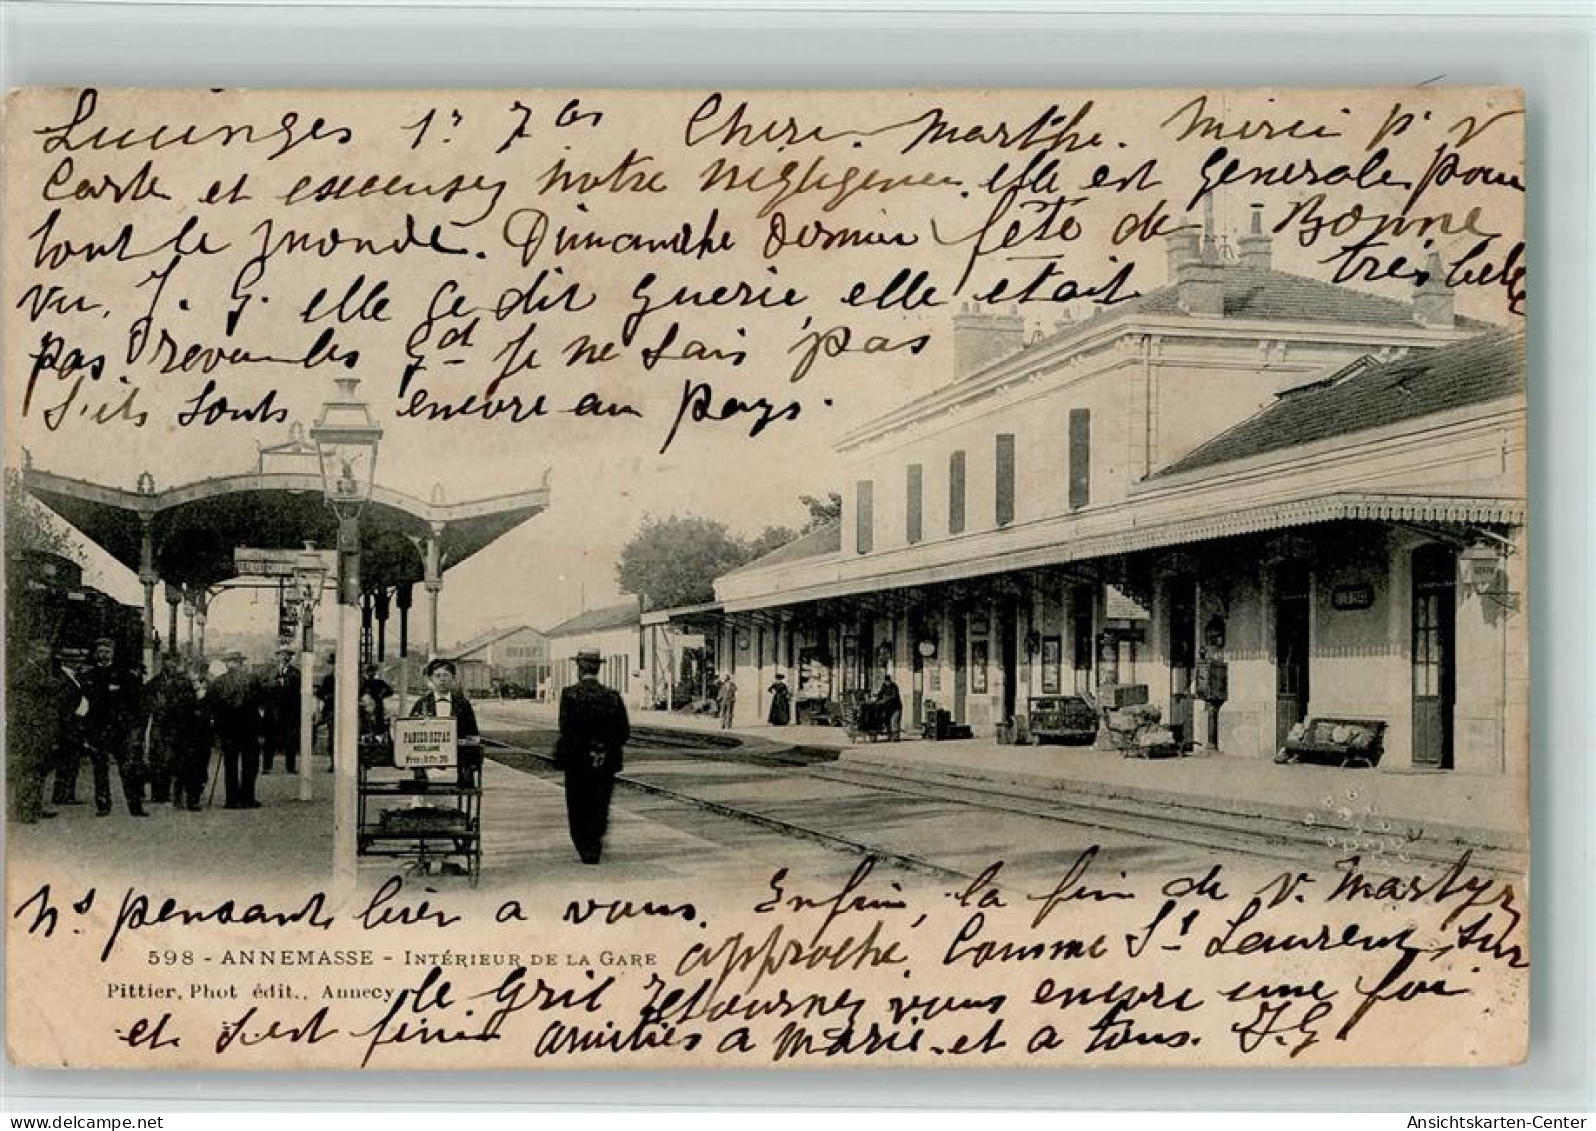 Lucinges 1r 7bre Chère Marthe. Merci pr v
Carte et excusez notre négligence. elle est Generale pour
tout le monde. Dimanche dernier fête de Bonne
vu. J. G. elle ce dit Guerie, elle était très belle
pas revu les Gd Je ne sais pas
s'ils sonts encore au pays.
PANIER REPAS
RÉCLAME
27
Ns pensant bien a vous. Enfin, la fin de v. Martyr
approche. Comme St Laurent, sur
598 - ANNEMASSE - INTÉRIEUR DE LA GARE
Pittier, Phot édit., Annecy
le Gril retournez vous encore une foi
et s'est fini amitiés a Marie et a tous. J. G
node-nk.delcampe.net
Ansichtskarten-Center